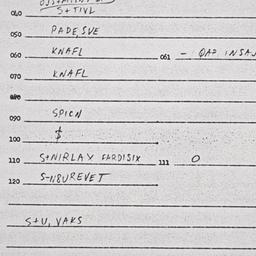 040 S+TIVL
050 PADE, SVE
060 KNAFL 061 - QAP. INSA
070 KNAFL
080
090 SPICN
100 $
110 S+NIRLAX FARDISIX 111 O
120 S-N8UREVET
S+U, VAKS